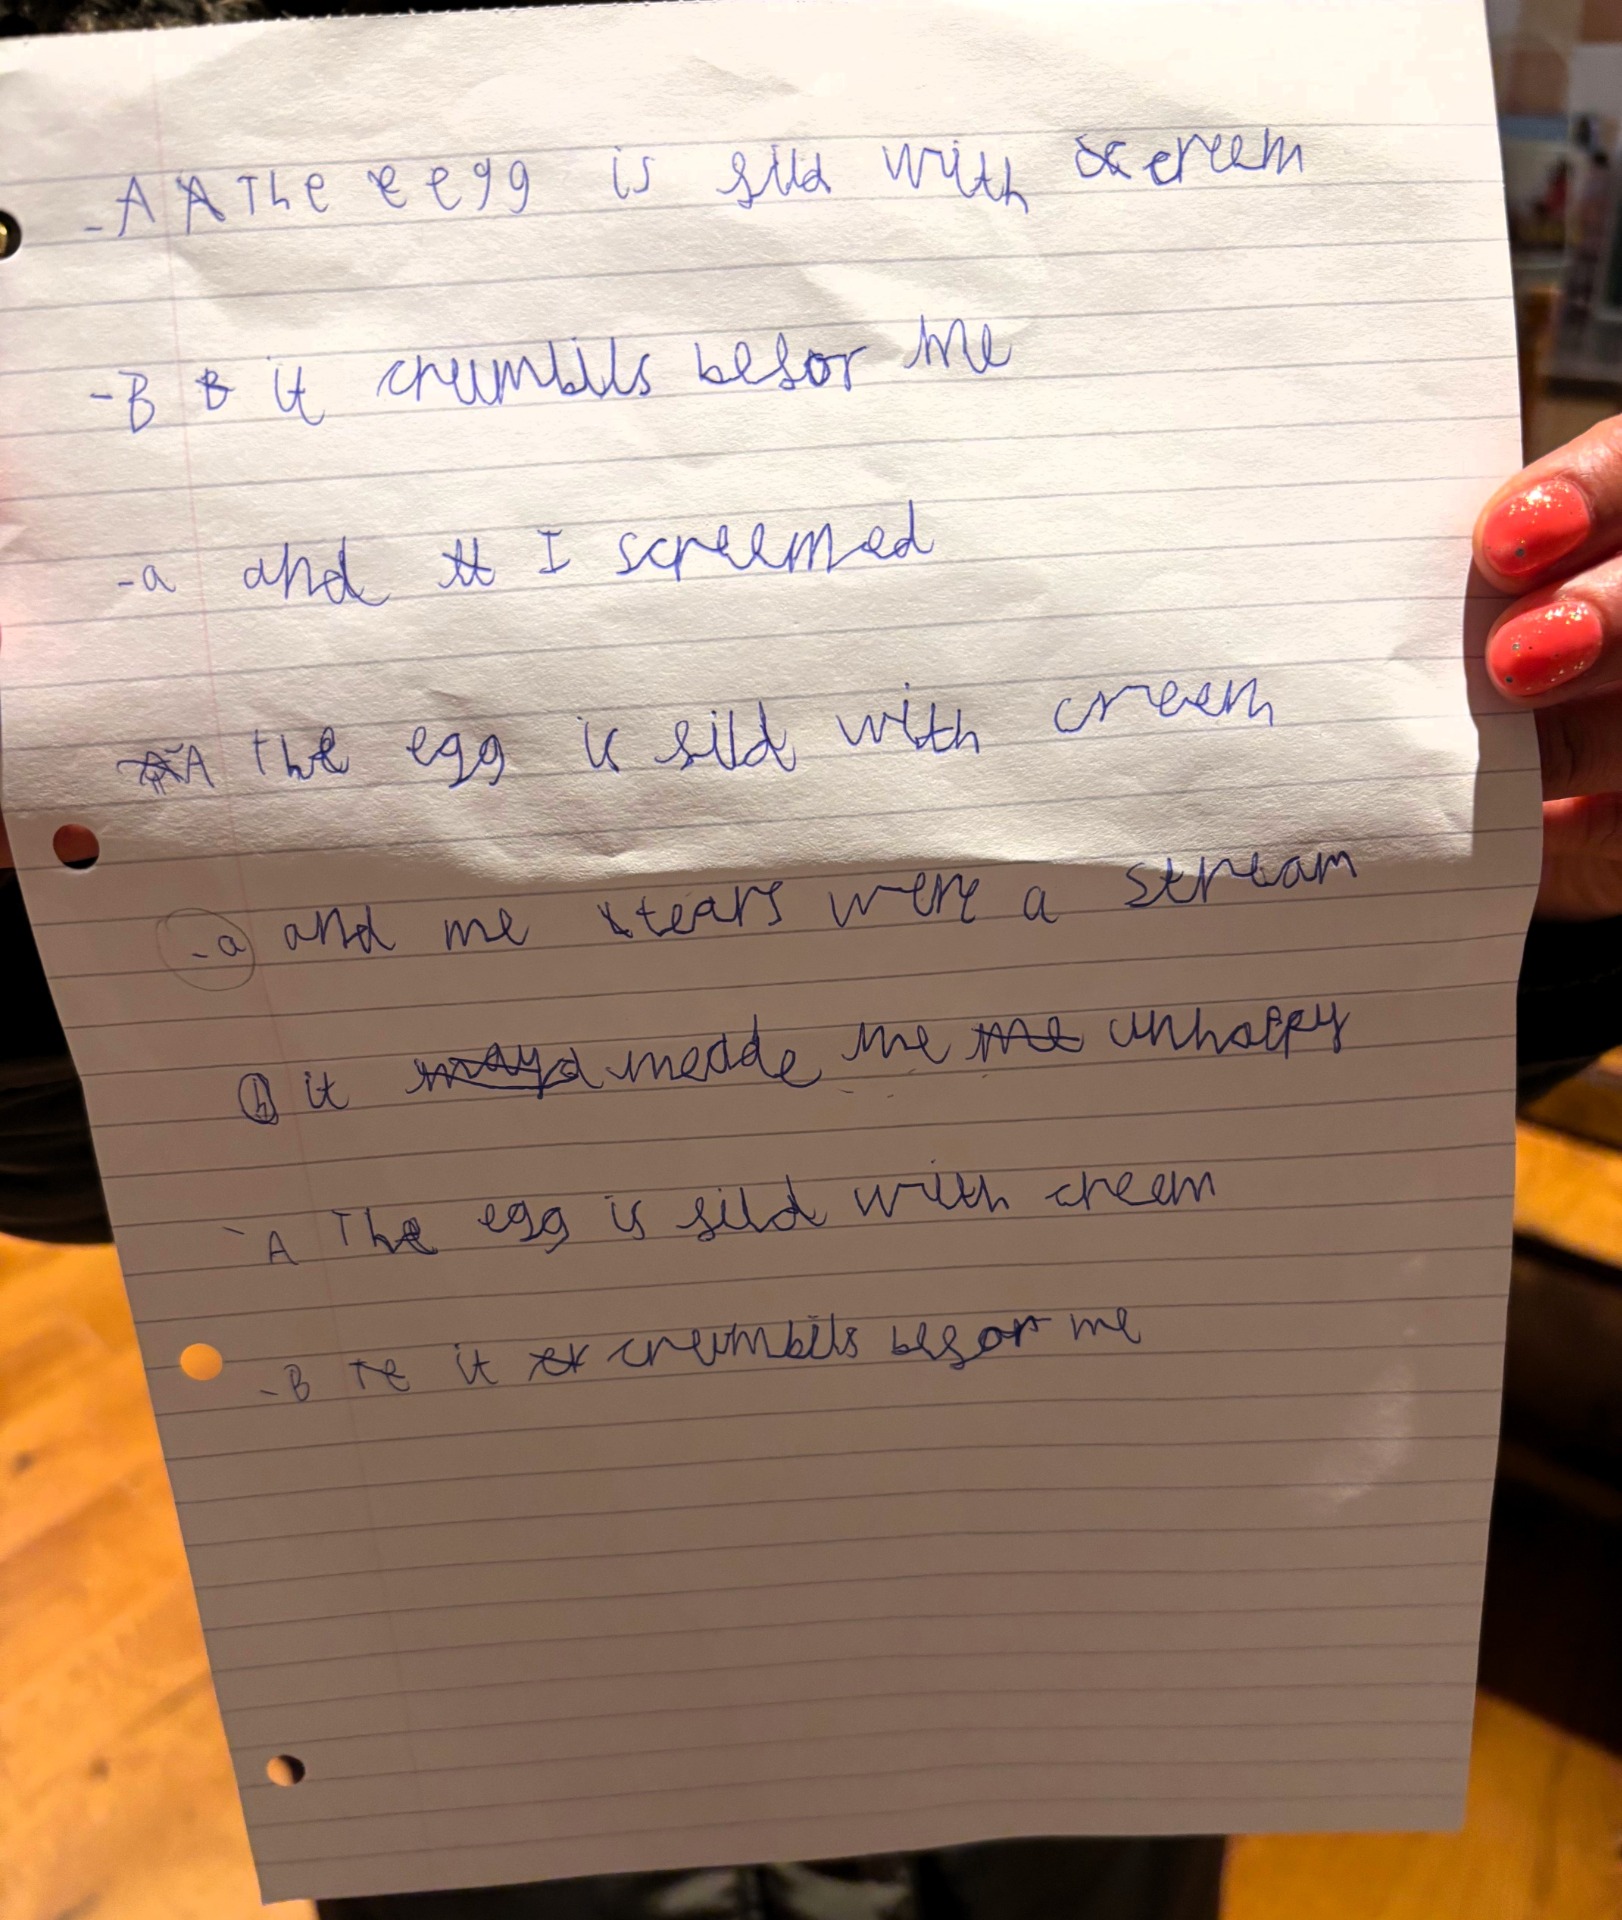 - A A The e egg is fild with creem
- B B it crumbils befor me
- a and tt I screemed
A A the egg is fild with creem
- a and me tears were a stream
b it mayd meade me me unhappy
- A The egg is fild with creem
- B it crumbils befor me